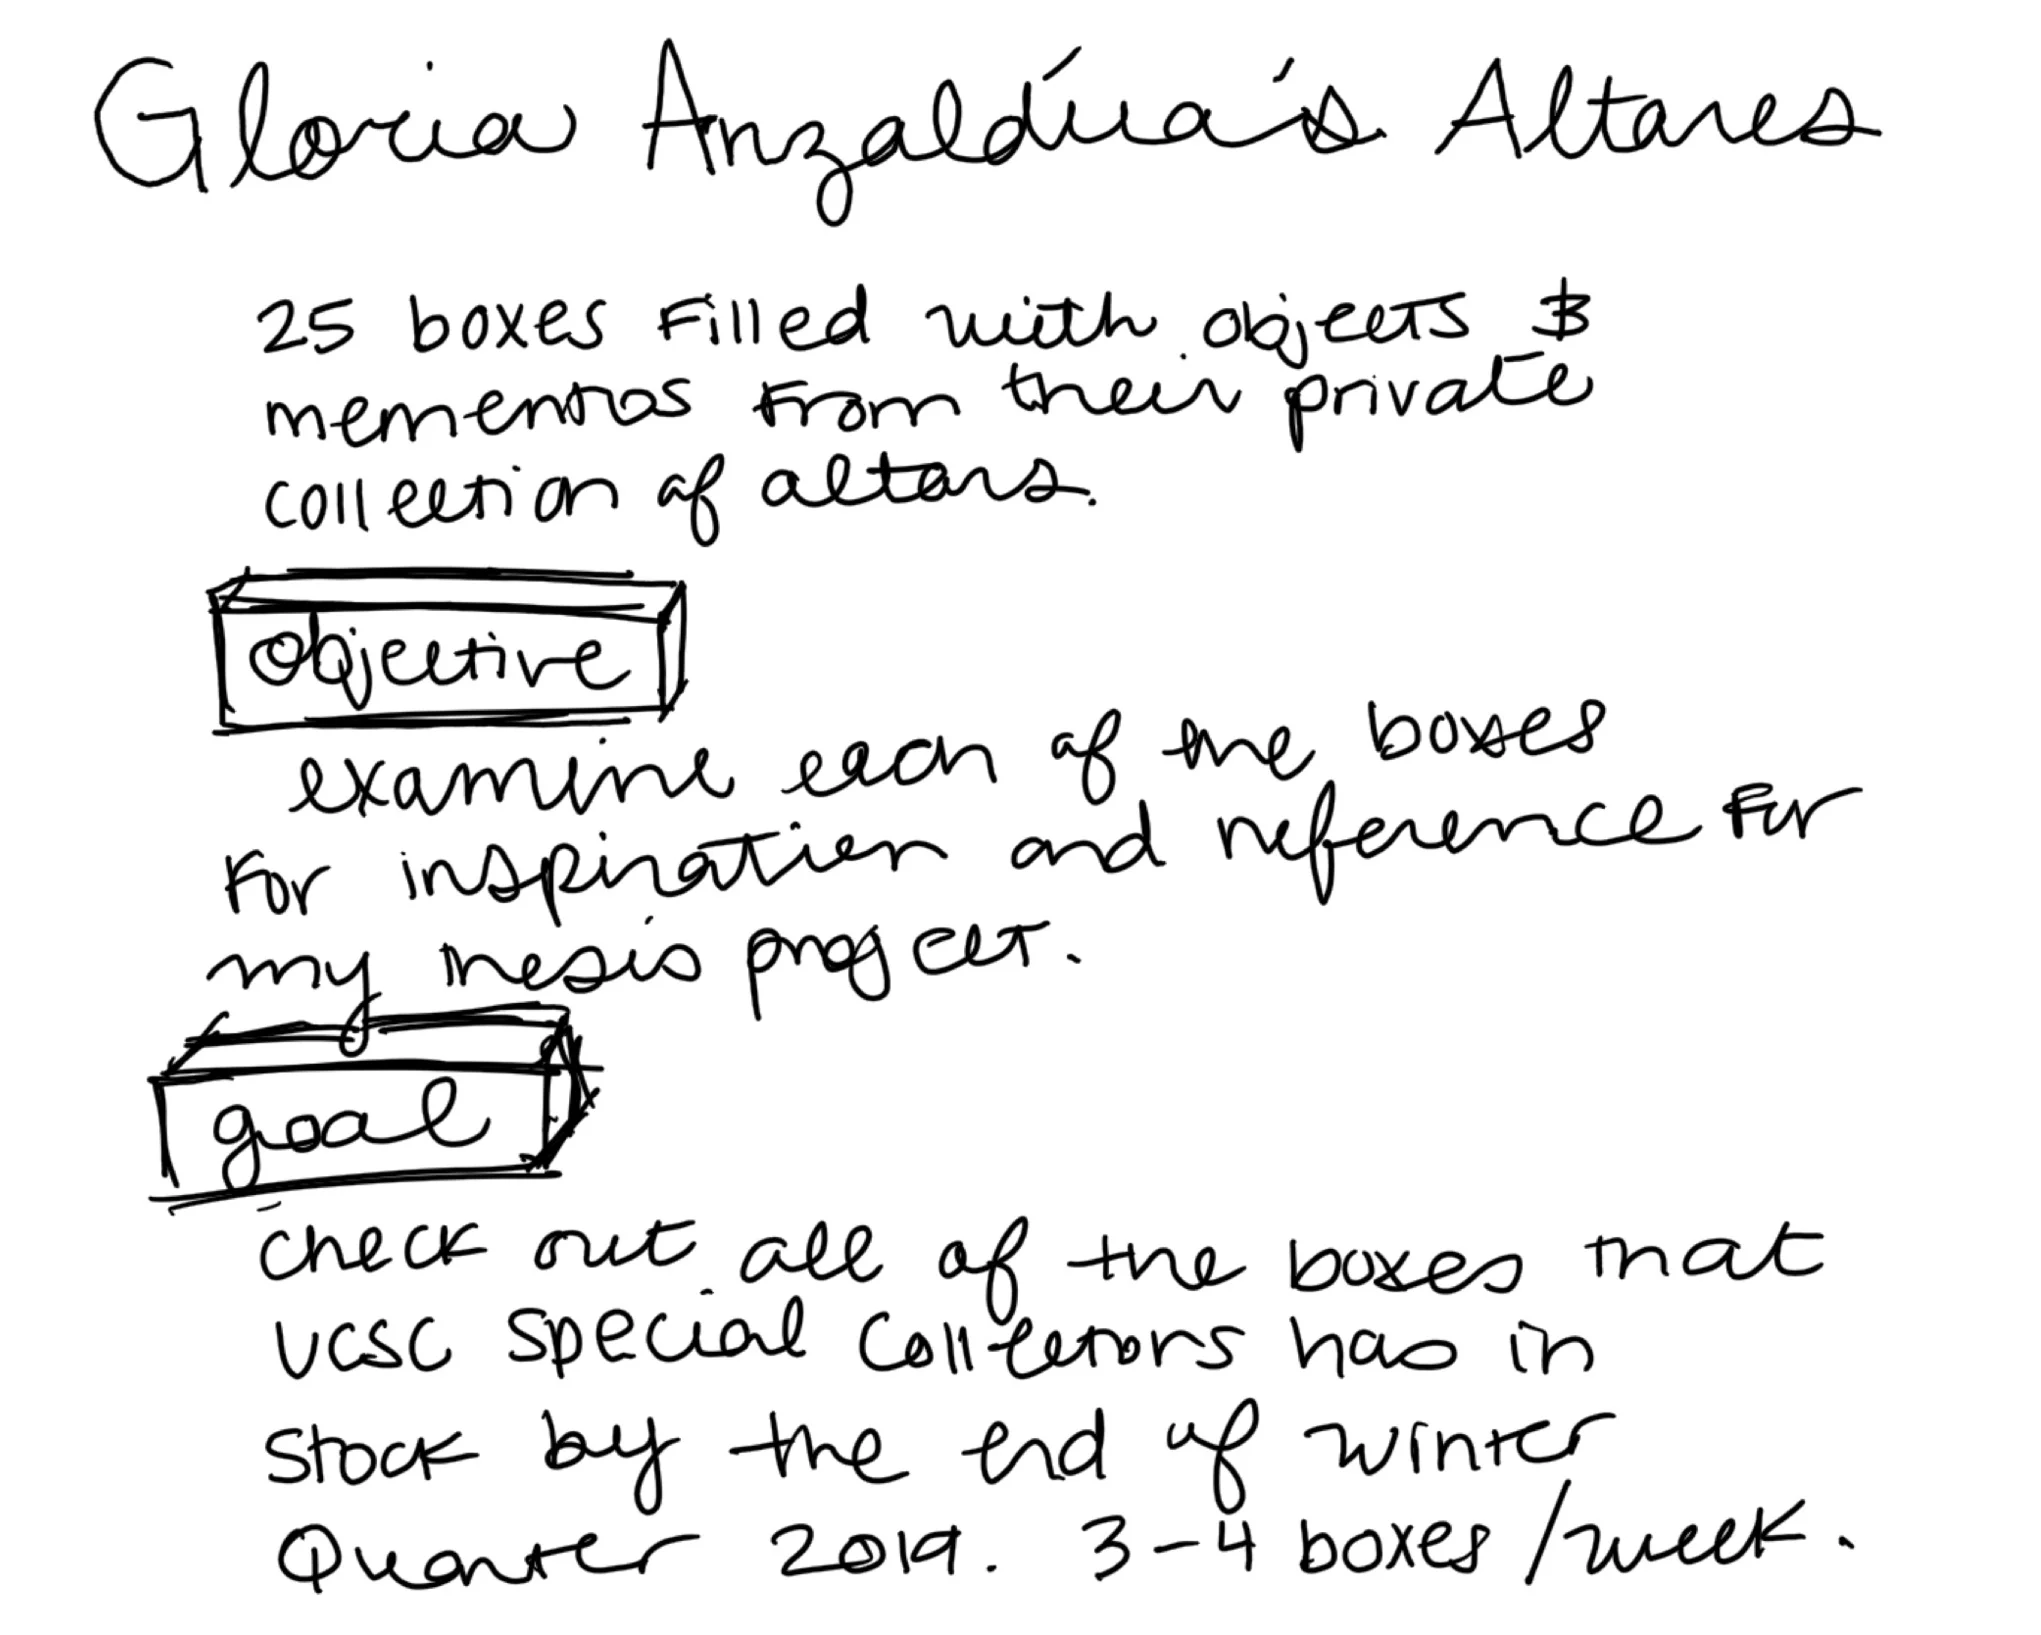 Gloria Anzaldúa's Altares
25 boxes filled with objects &
mementos from their private
collection of altars.
objective
examine each of the boxes
for inspiration and reference for
my thesis project.
goal
check out all of the boxes that
UCSC Special Colletions has in
stock by the end of winter
Quarter 2019. 3-4 boxes/week.